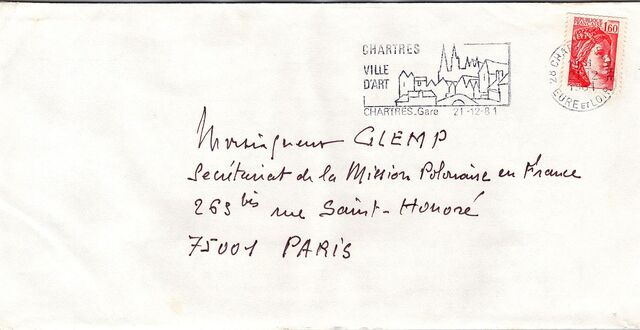 CHARTRES
VILLE
D'ART
CHARTRES-Gare 21-12-81
REPUBLIQUE FRANCAISE
1,60
28 CHAR
12
EURE et LOIR
Monsigneur GLEMP
Secrétariat de la Mission Polonaise en France
263 bis rue Saint-Honoré
75001 PARIS